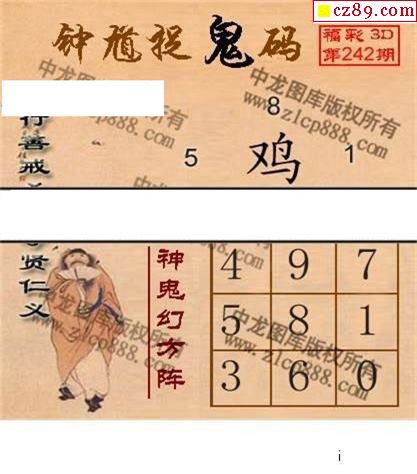 cz89.com
钟馗捉鬼码
福彩 3D
第242期
中龙图库版权所有
www.zlcp888.com
行善戒
8
5 鸡 1
贤仁义
神鬼幻方阵
4 9 7
5 8 1
3 6 0
中龙图库版权所有
www.zlcp888.com
i